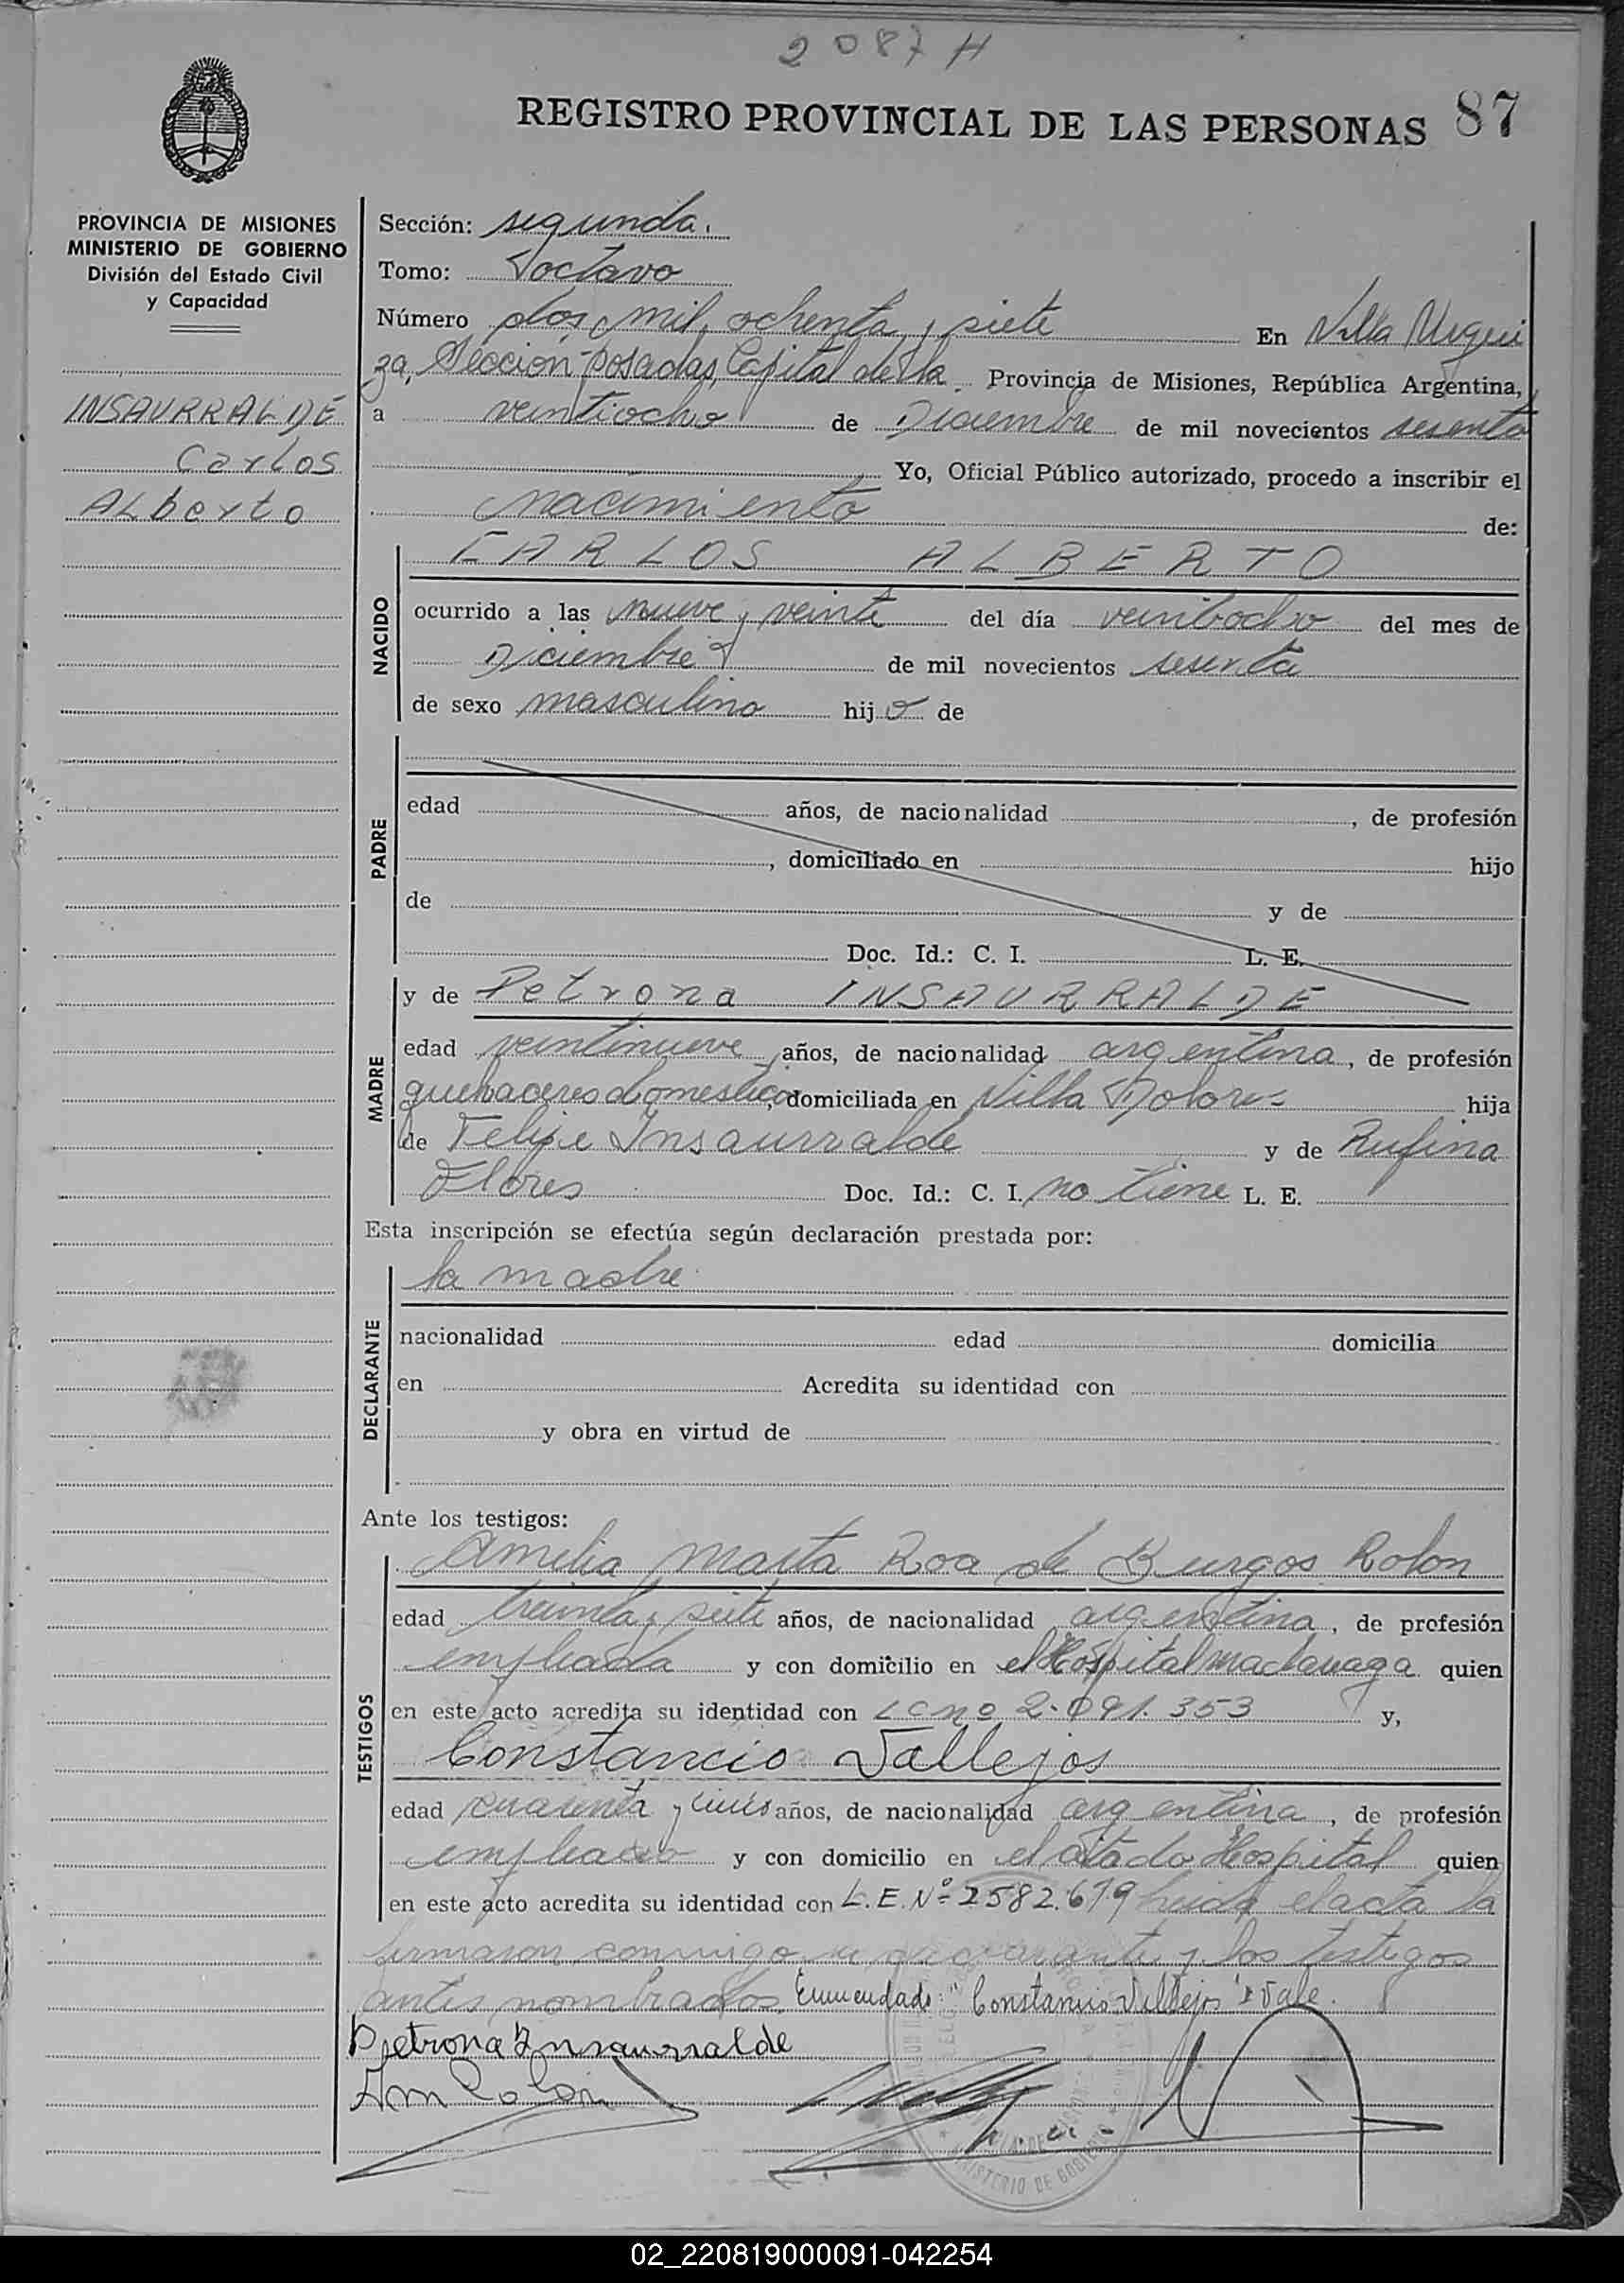 2087 H
REGISTRO PROVINCIAL DE LAS PERSONAS 87
PROVINCIA DE MISIONES
MINISTERIO DE GOBIERNO
División del Estado Civil
y Capacidad
INSAURRALDE
Carlos
ALberto
Sección: segunda.
Tomo: octavo
Número dos mil, ochenta y siete En Villa Urqui
za, Sección Posadas, Capital de la Provincia de Misiones, República Argentina,
a veintiocho de Diciembre de mil novecientos sesenta
Yo, Oficial Público autorizado, procedo a inscribir el
nacimiento de:
NACIDO
CARLOS ALBERTO
ocurrido a las nueve y veinte del día veintiocho del mes de
Diciembre de mil novecientos sesenta
de sexo masculino hijo de
PADRE
edad años, de nacionalidad , de profesión
, domiciliado en hijo
de y de
Doc. Id.: C. I. L. E.
MADRE
y de Petrona INSAURRALDE
edad veintinueve años, de nacionalidad argentina, de profesión
quehaceres domestico, domiciliada en Villa Dolores hija
de Felipe Insaurralde y de Rufina
Flores Doc. Id.: C. I. no tiene L. E.
Esta inscripción se efectúa según declaración prestada por:
DECLARANTE
la madre
nacionalidad edad domicilia
en Acredita su identidad con
y obra en virtud de
Ante los testigos:
TESTIGOS
Amelia Marta Roa de Burgos Rolon
edad treinta y siete años, de nacionalidad argentina, de profesión
empleada y con domicilio en el Hospital Madariaga quien
en este acto acredita su identidad con LC no 2.091.353 y,
Constancio Vallejos
edad cuarenta y años, de nacionalidad argentina, de profesión
empleado y con domicilio en el citado Hospital quien
en este acto acredita su identidad con L.E. Nº 2582.679 leida el acta la
firmaron conmigo la declarante y los testigos
antes nombrados. Enmendado: "Constancio Vallejos" Vale.
Petrona Insaurralde
MINISTERIO DE GOBIERNO
02_220819000091-042254